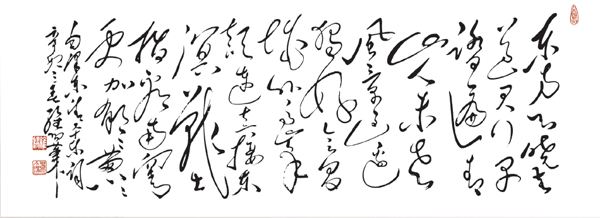 东方欲晓莫
道君行早
踏遍青
山人未老
风景这边
独好会昌
城外高峰
颠连直接东
溟战士
指看南粤
更加郁々葱々
泽东词
辛卯之春